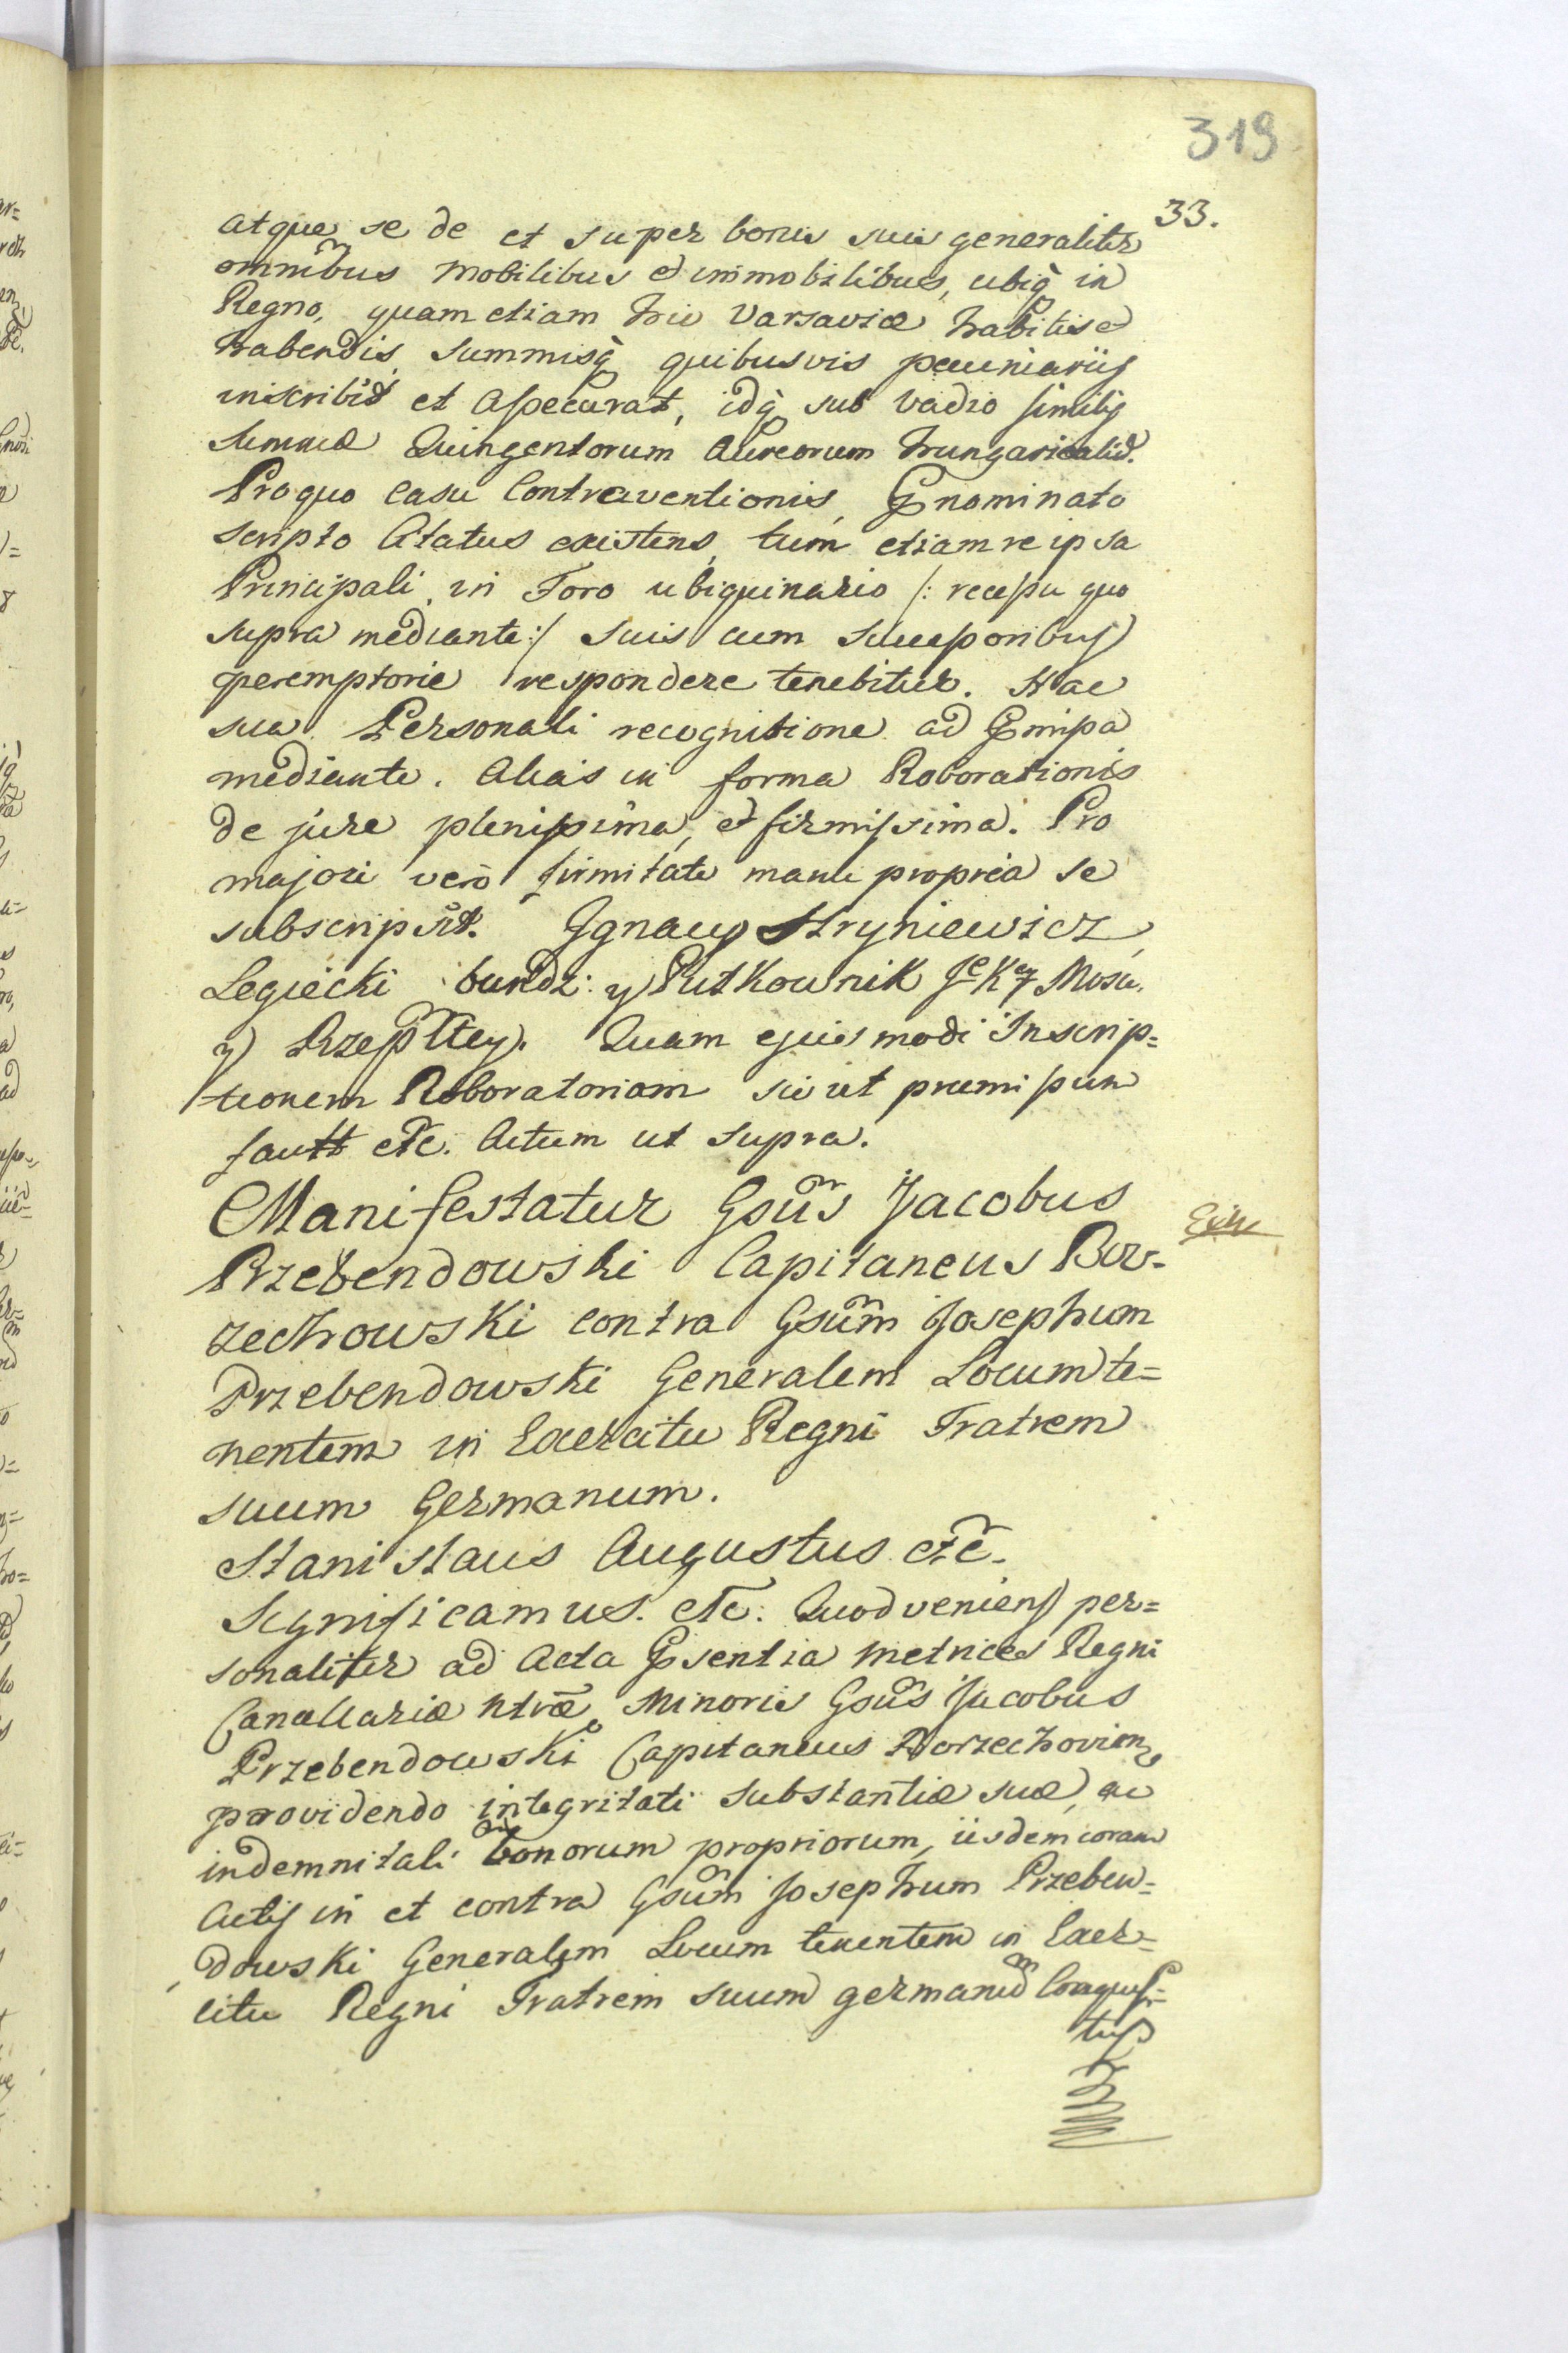 319
33.
atque se de et super bonis suis generaliter
omnibus mobilibus et immobilibus, ubiq̀ in
Regno, quam etiam hic Varsaviæ habitis et
habendis, summisq̀ quibusvis pecuniariis
inscribit et assecurat, idq̀ sub vadio similis
Summæ Quingentorum Aureorum Hungaricaliū.
Pro quo casu Contraventionis, Prnominato
scripto Citatus existens, tum etiam re ipsa
Principali, in Foro ubiquinario /: recessu quo
supra mediante :/ suis cum Successoribus
peremptorie respondere tenebitur. Hac
sua Personali recognitione ad Prmissa
mediante. Alias in forma Roborationis
de jure plenissima, et firmissima. Pro
majori verò firmitate manu propria se
subscripsit. Ignacy Hryniewicz,
budz: y Pułkownik JeKcy Mosci,
y Rzepltey. Quam ejusmodi Inscrip=
tionem Roboratoriam sicut præmissum
etc. Actum ut supra.
Manifestatur Gsus Jacobus
Przebendowski Capitaneus Bor-
zechowski contra Gsum Josephum
Przebendowski Generalem Locumte=
nentem in Exercitu Regni Fratrem
suum Germanum.
Stanislaus Augustus etc.
Significamus. etc. Quod veniens per=
sonaliter ad Acta Prsentia Metrices Regni
Cancellariæ Ntræ Minoris Gsus Jacobus
Przebendowski Capitaneus Borzechovien,
providendo integritati substantiæ suæ, ac
indemnitati bonorum propriorum, iisdem coram
Actis in et contra Gsum Josephum Przeben=
dowski Generalem Locum tenentem in Exer=
citu Regni Fratrem suum germanū Conquesi=
tus